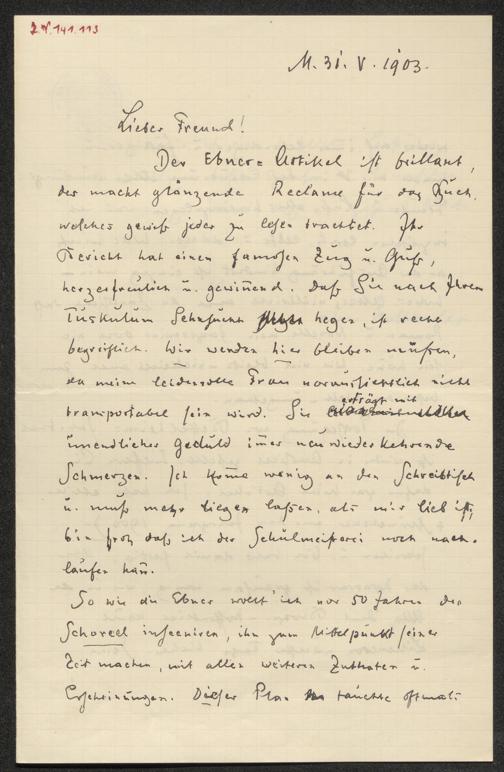 I.N. 141.113
M. 31. V. 1903.
Lieber Freund!
Der Ebner= Artikel ist brillant,
der macht glänzende Reclame für das Buch,
welches gewiß jeder zu lesen trachtet. Ihr
Bericht hat einen famosen Zug u. Guß,
herzerfreulich u. gewinnend. Daß Sie nach Ihrem
Tuskulum Sehnsucht hegen, ist recht
begreiflich. Wir werden hier bleiben müssen,
da meine leidensvolle Frau voraussichtlich nicht
transportabel sein wird. Sie erträgt mit
unendlicher Geduld im̄er neu wiederkehrende
Schmerzen. Ich kom̄e wenig an den Schreibtisch
u. muß mehr liegen lassen, als mir lieb ist,
bin froh daß ich der Schulmeisterei noch nach-
laufen kan̄.
So wie die Ebner wollt' ich vor 50 Jahren den
Schoreel insceniren, ihn zum Mittelpunkt seiner
Zeit machen, mit allen weiteren Zuthaten u.
Erscheinungen. Dieser Plan tauchte oftmals